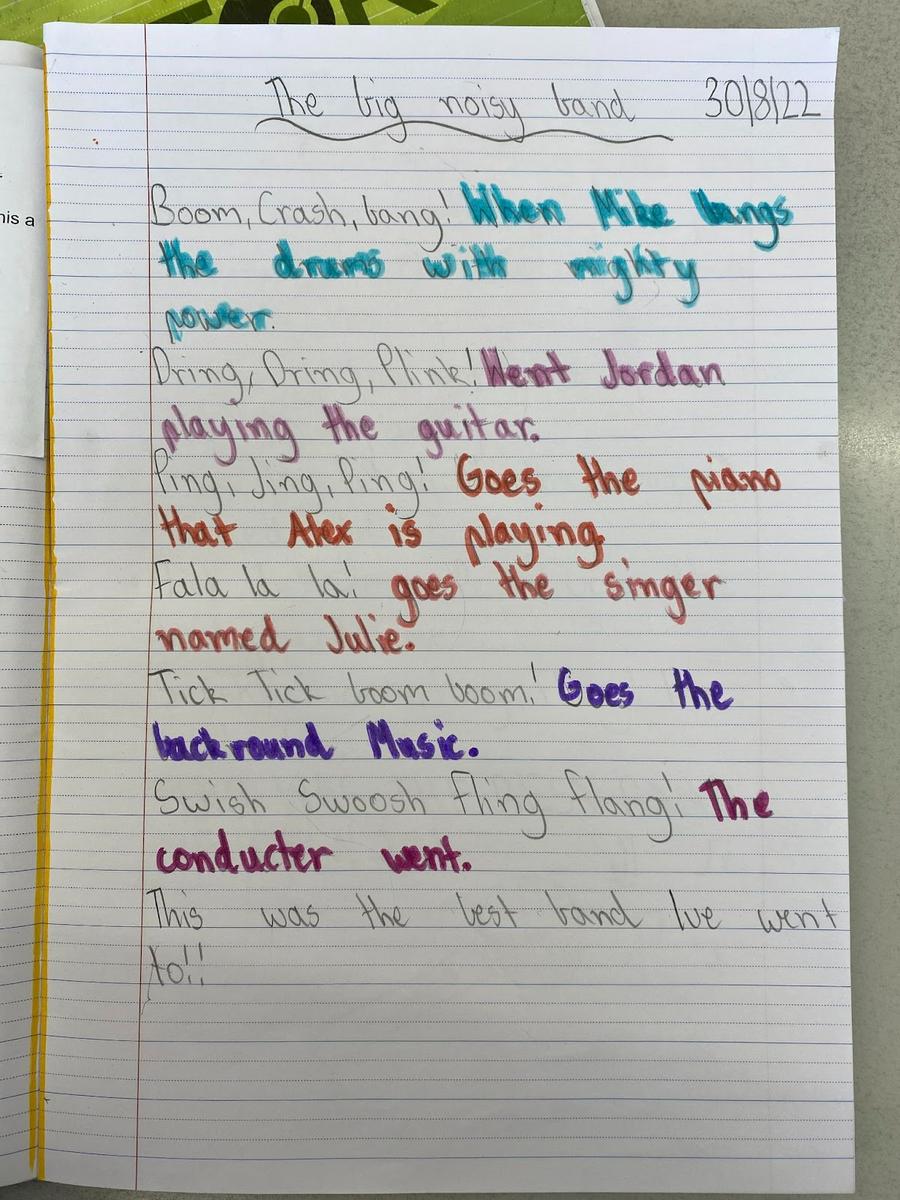 The big noisy band 30/8/22
his a
Boom, Crash, bang! When Mike bangs
the drums with mighty
power.
Dring, Dring, Plink! Went Jordan
playing the guitar.
Ping, Jing, Ping! Goes the piano
that Alex is playing.
Fala la la! goes the singer
named Julie.
Tick Tick boom boom! Goes the
backround Music.
Swish Swoosh Fling flang! The
conducter went.
This was the best band Ive went
to!!